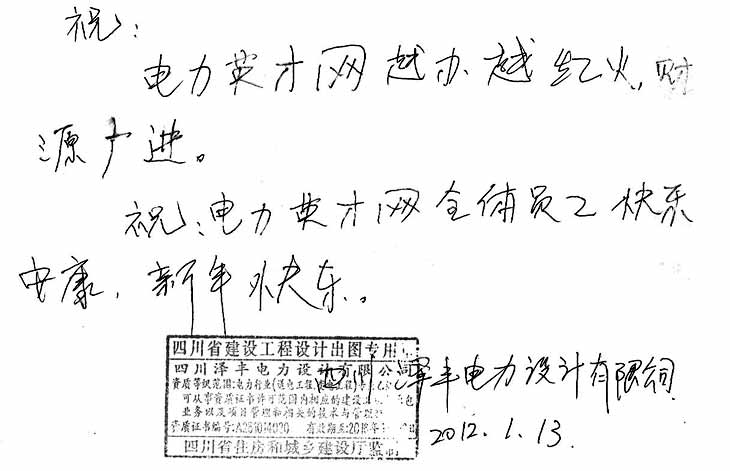 祝:
电力英才网越办越红火,财
源广进。
祝:电力英才网全体员工快乐
安康,新年快乐。
四川泽丰电力设计有限公司
2012.1.13.
四川省建设工程设计出图专用
四川泽丰电力设计有限公司
资质等级范围:电力行业(送电工程
可从事资质证书许可范围内相应的建设
业务以及项目管理和相关的技术与管理
资质证书编号:A251014030 有效期至:201
四川省住房和城乡建设厅监